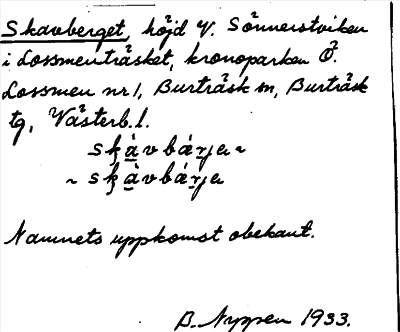 Skavberget, höjd V. Sönnerstviken
i Lossmenträsket, kronoparken Ö.
Lossmen nr 1, Burträsk sn, Burträsk
tg, Västerb. l.
skàvbárja ~
~ skàvbárja
Namnets uppkomst obekant.
B. Nyppen 1933.